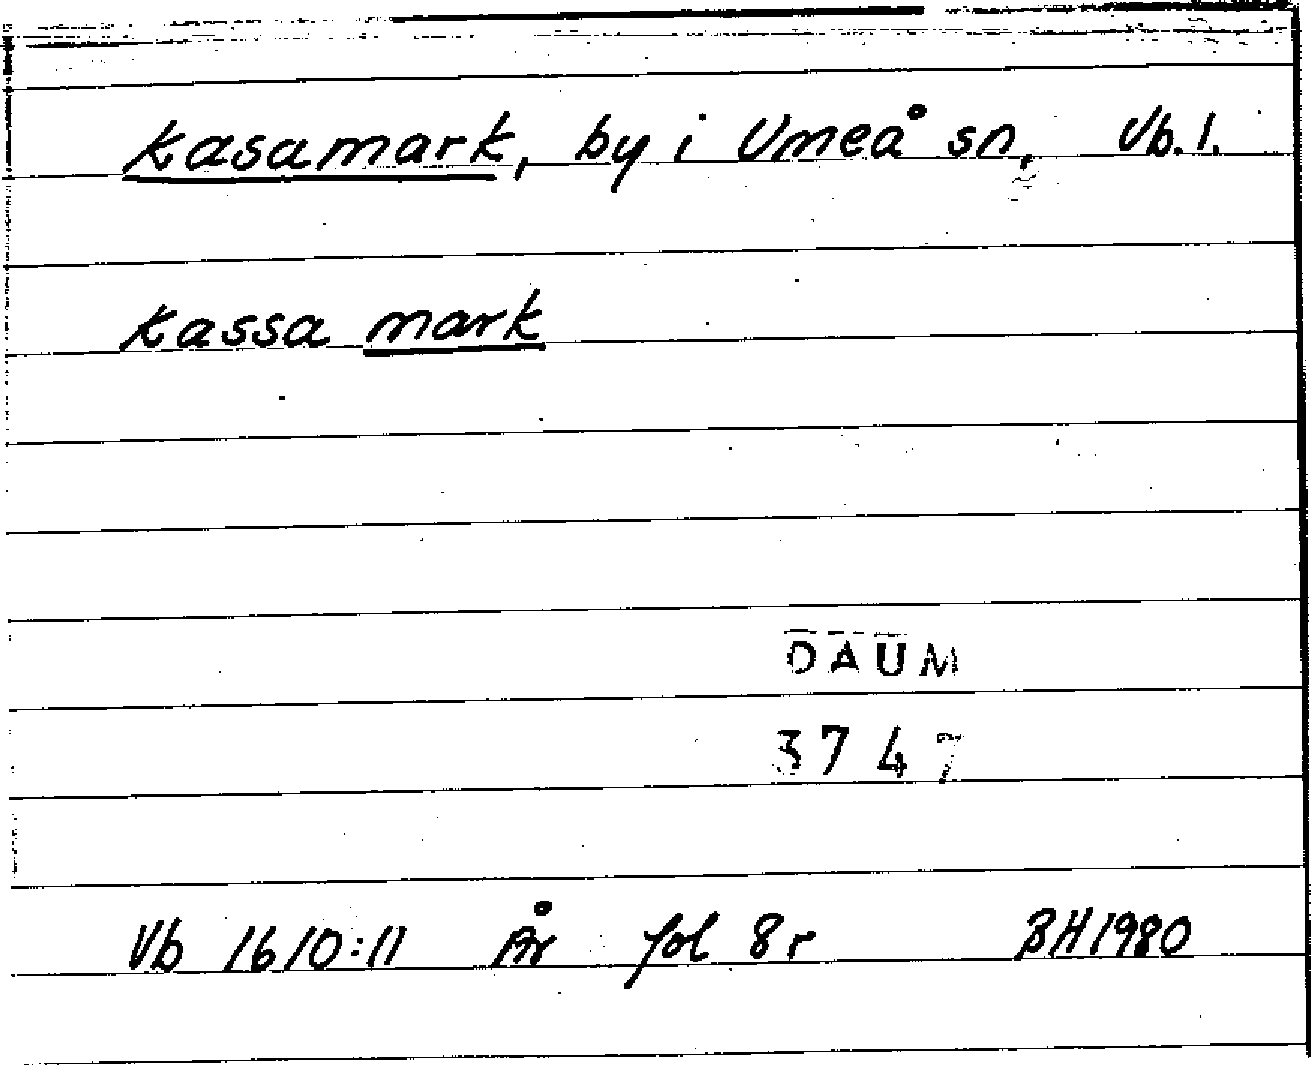 Kasamark, by i Umeå sn, Vb. l.
Kassa mark
DAUM
3747
Vb 1610:11 År fol 8r BH1980